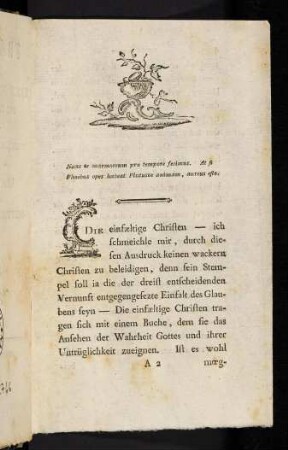 Nunc te marmoreum pro tempore fecimus. At si
Plurimus opes habent Plutusve animum, aureus esto.
DIE einfæltige Christen — ich
schmeichle mir, durch die-
sen Ausdruck keinen wackern
Christen zu beleidigen, denn sein Stem-
pel soll ia die der dreist entscheidenden
Vernunft entgegengesezte Einfalt des Glau-
bens seyn — Die einfæltige Christen tra-
gen sich mit einem Buche, dem sie das
Ansehen der Wahrheit Gottes und ihrer
Untrüglichkeit zueignen. Ist es wohl
A 2 mœg-